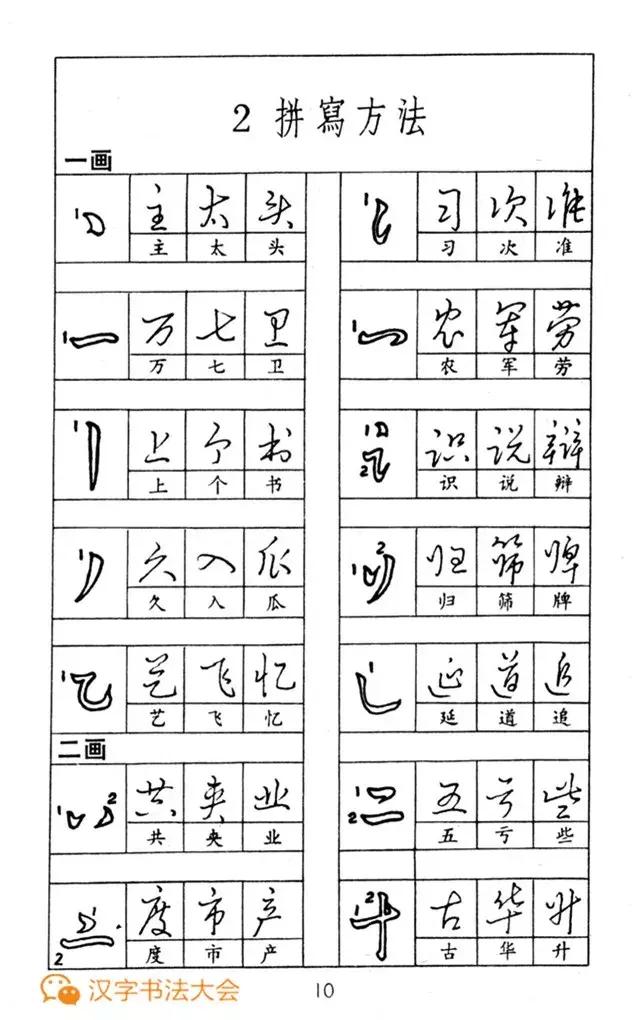 2 拼寫方法
一画
1 主 太 头 1 习 次 准
主 太 头 习 次 准
1 万 七 卫 1 农 军 劳
万 七 卫 农 军 劳
1 上 个 书 1 2 识 说 辩
上 个 书 识 说 辩
1 久 入 瓜 1 2 归 筛 牌
久 入 瓜 归 筛 牌
1 艺 飞 忆 1 延 道 追
艺 飞 忆 延 道 追
二画
1 2 共 央 业 1 2 五 亏 些
共 央 业 五 亏 些
1 2 度 市 产 1 2 古 华 升
度 市 产 古 华 升
汉字书法大会
10